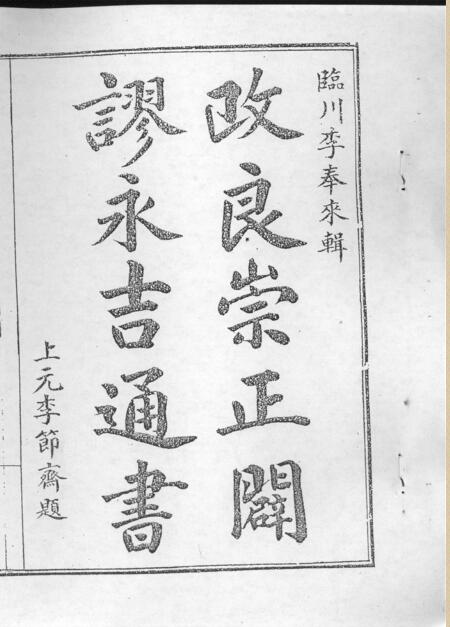 臨川李奉來輯
改良崇正闢
謬永吉通書
上元李節齋題